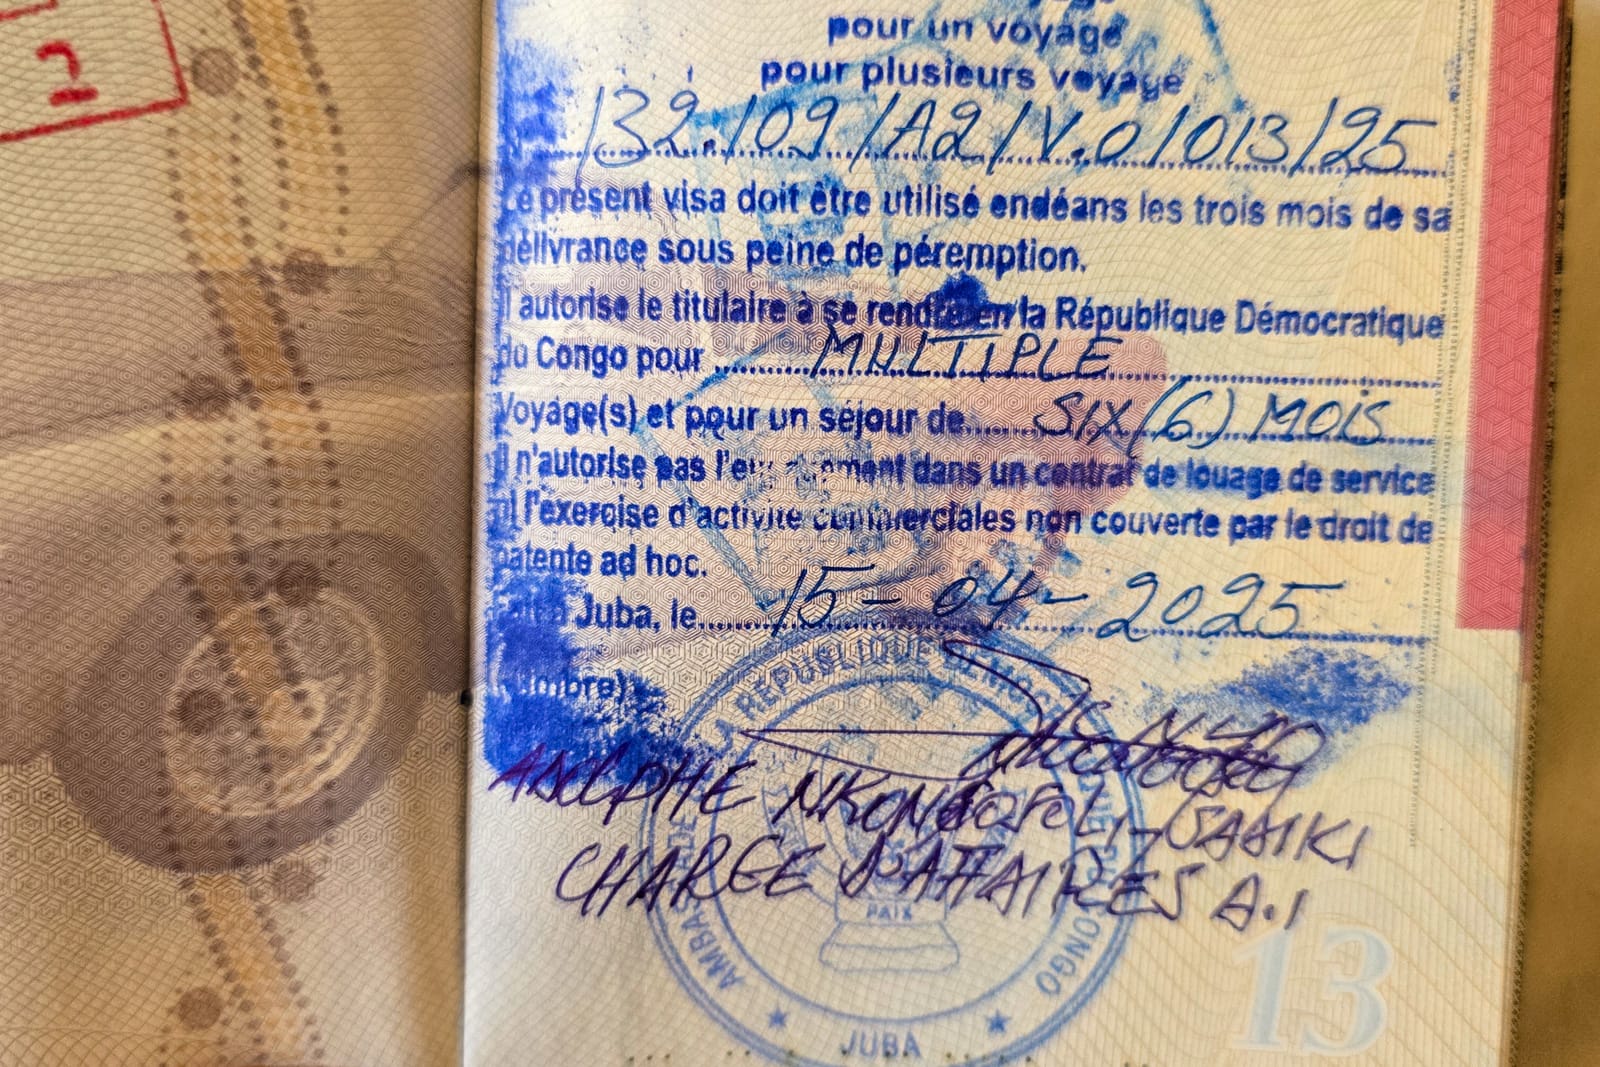 2
pour un voyage
pour plusieurs voyage
132.109/A2/V.01013/25
Le présent visa doit être utilisé endéans les trois mois de sa
délivrance sous peine de péremption.
Il autorise le titulaire à se rendre en la République Démocratique
du Congo pour MULTIPLE
Voyage(s) et pour un séjour de SIX (6) MOIS
Il n'autorise pas dans un contrat de louage de service
l'exercise d'activité commerciales non couverte par le droit de
patente ad hoc.
Fait à Juba, le 15-04-2025
(timbre)
ADOLPHE
CHARGE D'AFFAIRES A.I
PAIX
CONGO
JUBA
13